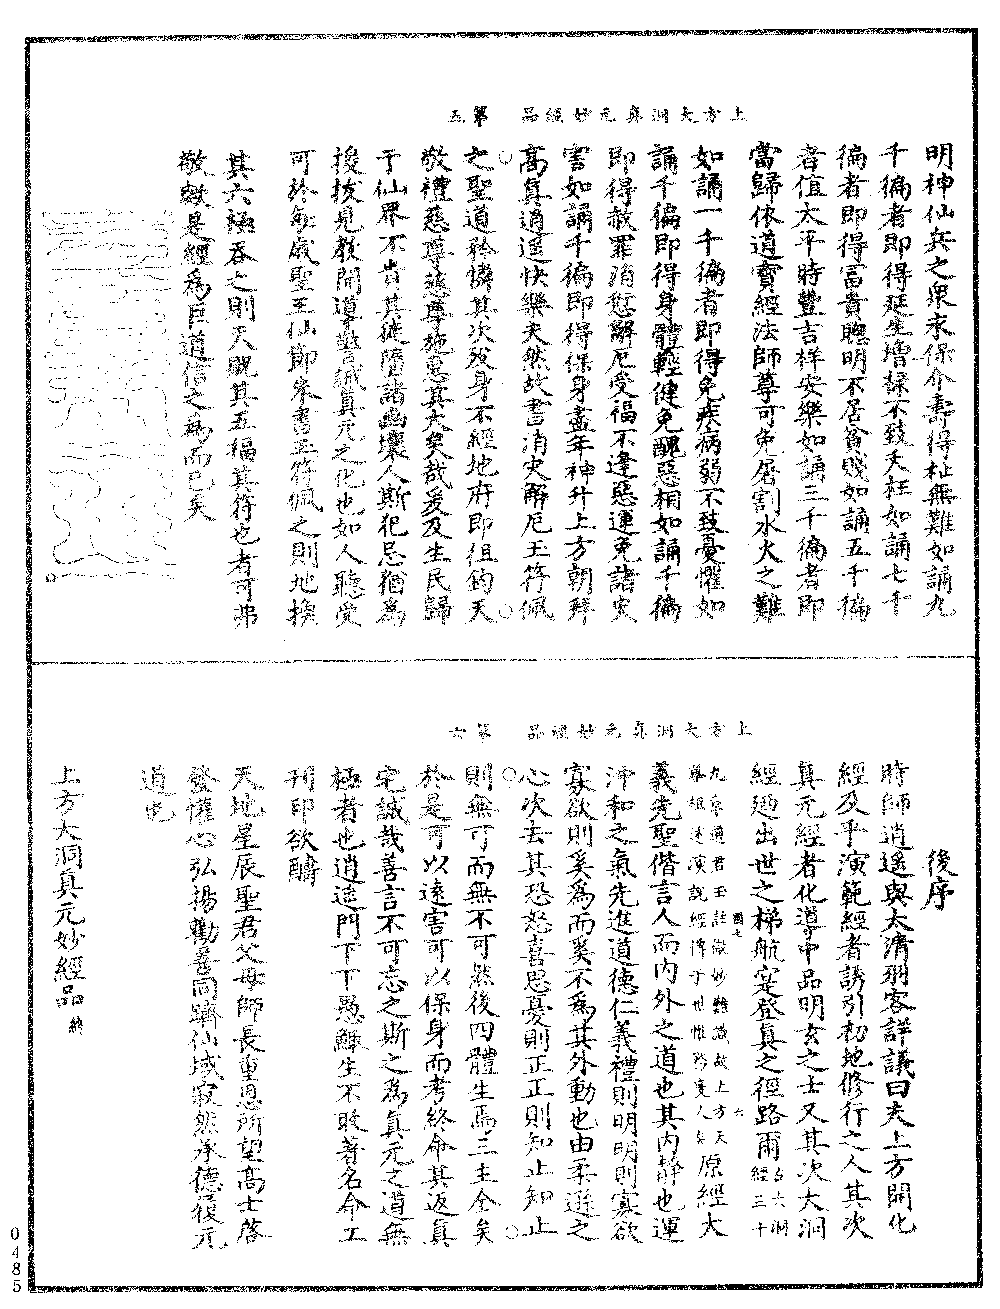 上方大洞真元妙經品　第五
明神仙兵之衆永保介壽得祉無難如誦九
千徧者即得延生增祿不致夭枉如誦七千
徧者即得富貴聰明不居貧賤如誦五千徧
者值太平時豐吉祥安樂如誦三千徧者即
當歸依道寶經法師尊可免屠割水火之難
如誦一千徧者即得免疾病弱不致憂懼如
誦千徧即得身體輕健免醜惡相如誦千徧
即得赦罪消愆解厄受福不逢惡運免諸災
害如誦千徧即得保身盡年神升上方朝拜
高真逍遥快樂天然故書消災解厄玉符佩
之聖道矜憐其次歿身不經地府即徂鈞天
敬禮慈尊慈尊施惠其大矣哉爰及生民歸
于仙界不肯其徒墮諸幽壤人斯犯忌猶為
援拔見教開導誥誡真元之化也如人聽受
可於每歲聖王仙節朱書玉符佩之則地換
其六極吞之則天貺其五福其符也者可弗
敬歟是經為巨道信之為而已矣
上方大洞真元妙經品　第六
後序
時師逍遥與太清羽客詳議曰夫上方開化
經及乎演範經者誘引初地修行之人其次
真元經者化導中品明玄之士又其次大洞
經廼出世之梯航寔登真之徑路爾
原經大
義先聖偕言人而內外之道也其內靜也運
沖和之氣先進道德仁義禮則明明則寡欲
寡欲則奚為而奚不為其外動也由柔遜之
心次去其恐怒喜思憂則正正則知止知止
則無可而無不可然後四體生焉三主全矣
於是可以遠害可以保身而考終命其返真
宅誠哉善言不可忘之斯之為真元之道無
極者也逍遥門下下愚鯫生不敢著名命工
刊印欲酬
天地星辰聖君父母師長重恩所望高士啓
發懽心弘揚勸善同躋仙域寂然承德復元
道也
上方大洞真元妙經品終
0485